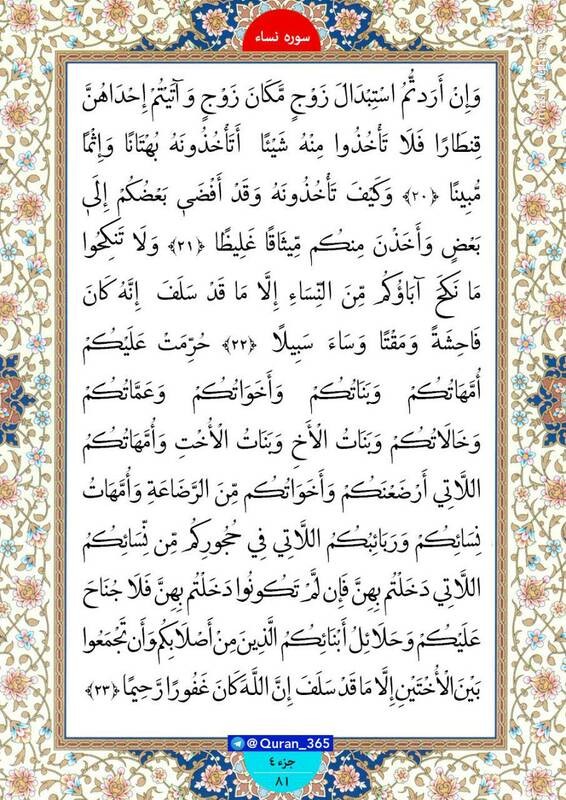 سوره نساء
وَإِنْ أَرَدتُّمُ اسْتِبْدَالَ زَوْجٍ مَّكَانَ زَوْجٍ وَآتَيْتُمْ إِحْدَاهُنَّ
قِنطَارًا فَلَا تَأْخُذُوا مِنْهُ شَيْئًا أَتَأْخُذُونَهُ بُهْتَانًا وَإِثْمًا
مُّبِينًا ﴿۲۰﴾ وَكَيْفَ تَأْخُذُونَهُ وَقَدْ أَفْضَى بَعْضُكُمْ إِلَى
بَعْضٍ وَأَخَذْنَ مِنكُم مِّيثَاقًا غَلِيظًا ﴿۲۱﴾ وَلَا تَنكِحُوا
مَا نَكَحَ آبَاؤُكُم مِّنَ النِّسَاءِ إِلَّا مَا قَدْ سَلَفَ إِنَّهُ كَانَ
فَاحِشَةً وَمَقْتًا وَسَاءَ سَبِيلًا ﴿۲۲﴾ حُرِّمَتْ عَلَيْكُمْ
أُمَّهَاتُكُمْ وَبَنَاتُكُمْ وَأَخَوَاتُكُمْ وَعَمَّاتُكُمْ
وَخَالَاتُكُمْ وَبَنَاتُ الْأَخِ وَبَنَاتُ الْأُخْتِ وَأُمَّهَاتُكُمُ
اللَّاتِي أَرْضَعْنَكُمْ وَأَخَوَاتُكُم مِّنَ الرَّضَاعَةِ وَأُمَّهَاتُ
نِسَائِكُمْ وَرَبَائِبُكُمُ اللَّاتِي فِي حُجُورِكُم مِّن نِّسَائِكُمُ
اللَّاتِي دَخَلْتُم بِهِنَّ فَإِن لَّمْ تَكُونُوا دَخَلْتُم بِهِنَّ فَلَا جُنَاحَ
عَلَيْكُمْ وَحَلَائِلُ أَبْنَائِكُمُ الَّذِينَ مِنْ أَصْلَابِكُمْ وَأَن تَجْمَعُوا
بَيْنَ الْأُخْتَيْنِ إِلَّا مَا قَدْ سَلَفَ إِنَّ اللَّهَ كَانَ غَفُورًا رَّحِيمًا ﴿۲۳﴾
@Quran_365
جزء ٤
۸۱